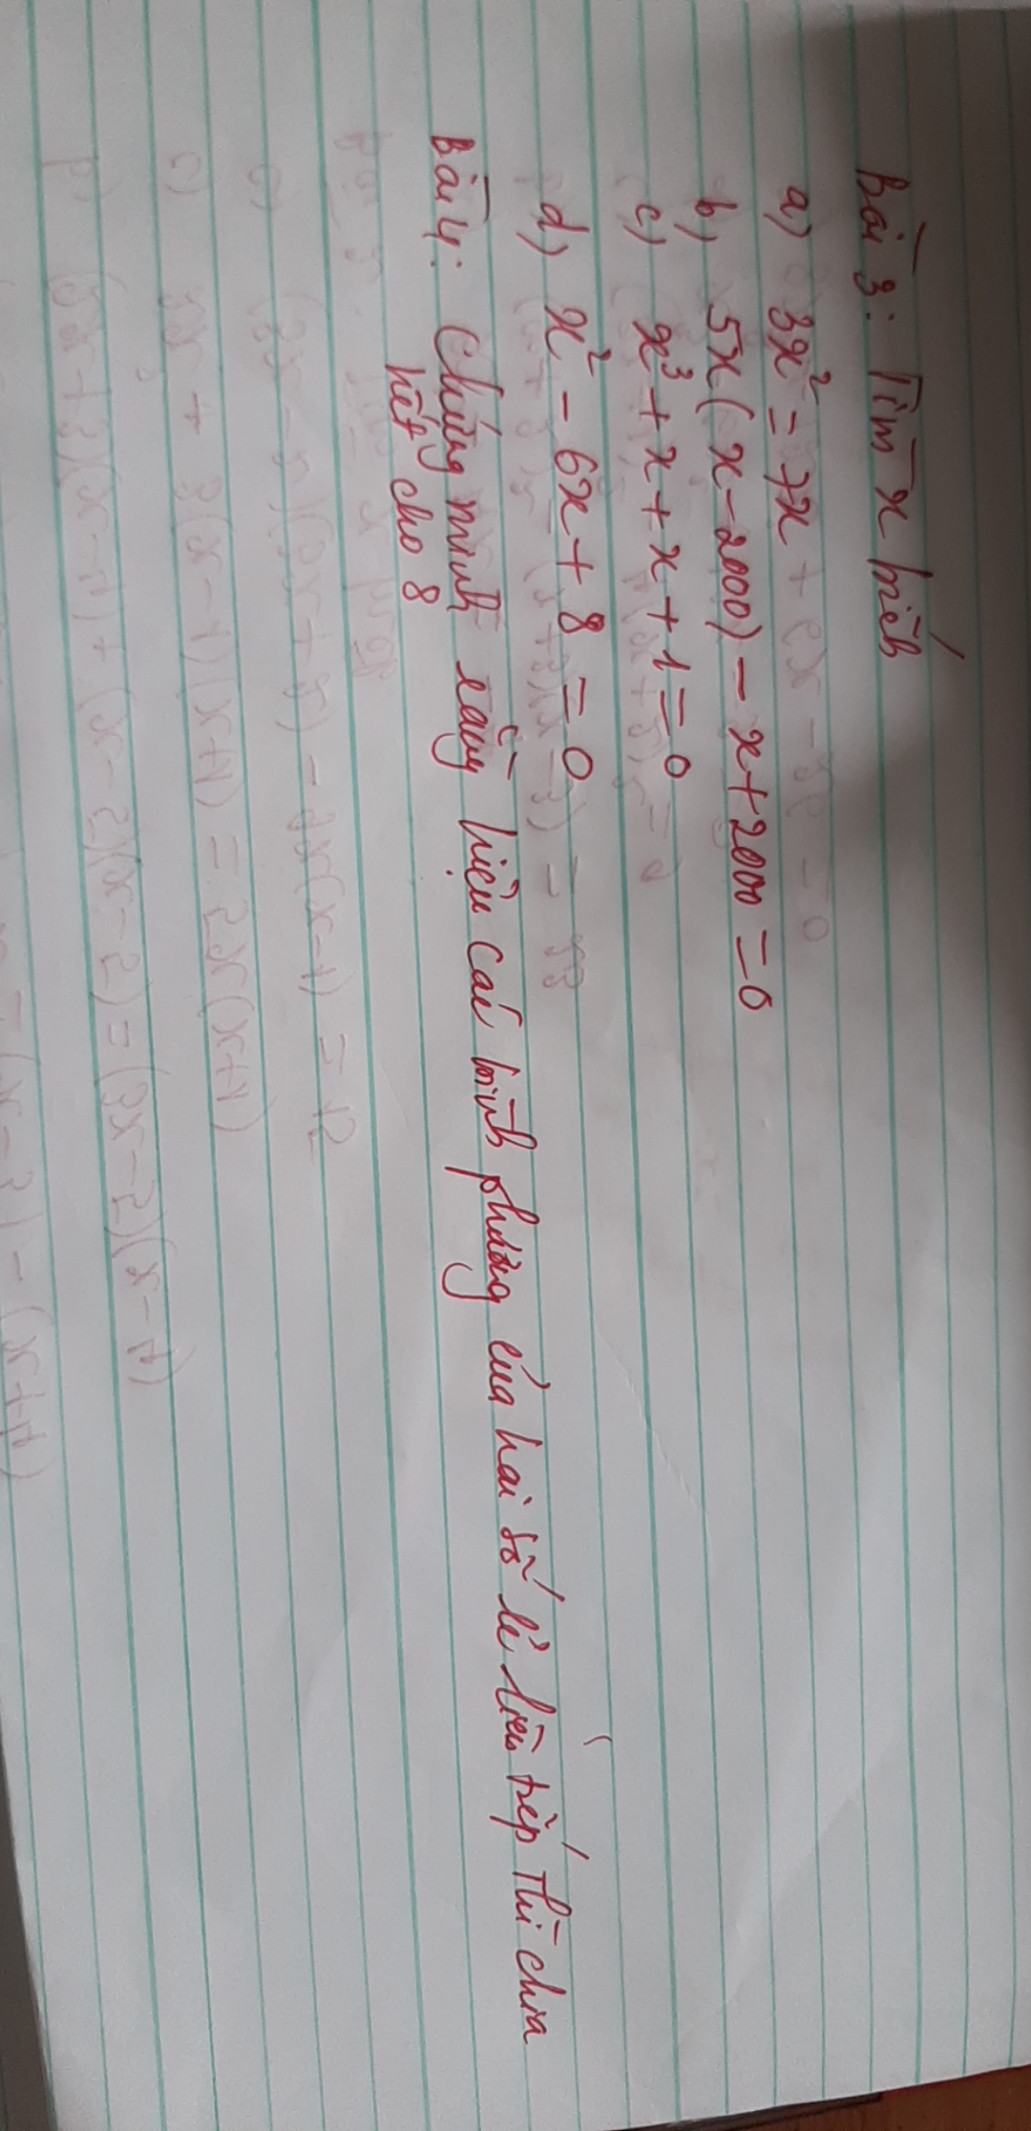 Bài 3: Tìm x biết
a) 3x² = 7x
b) 5x(x - 2000) - x + 2000 = 0
c) x³ + x + x + 1 = 0
d) x² - 6x + 8 = 0
Bài 4: Chứng minh rằng hiệu các bình phương của hai số lẻ liên tiếp thì chia
hết cho 8